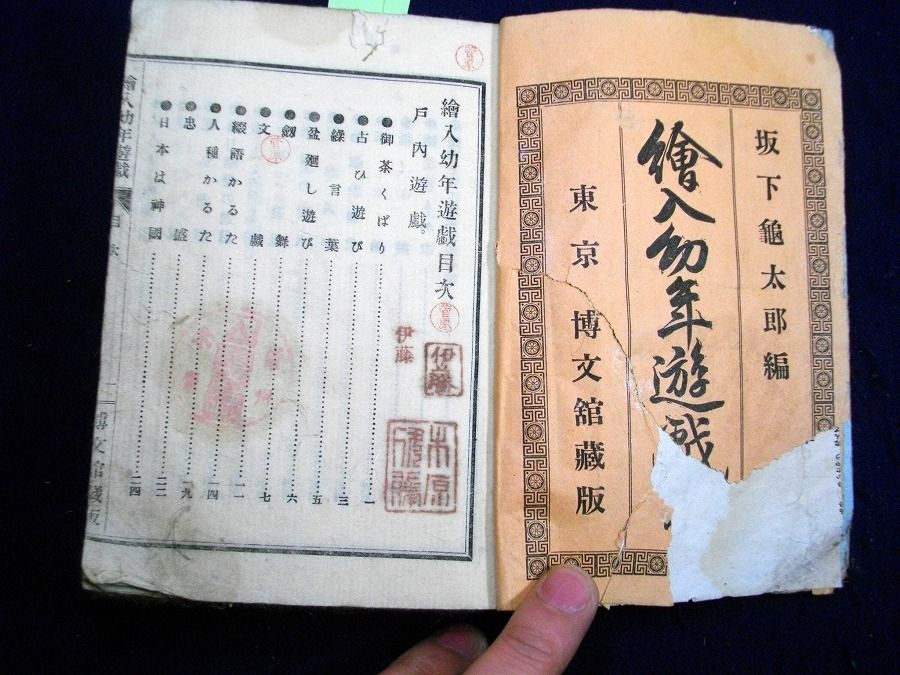 坂下龜太郎編
繪入幼年遊戲
東京 博文舘藏版
繪入幼年遊戲目次
戸內遊戲。
●御茶くばり 一
●占ひ遊び 三
●繰言葉
●盆廻し遊び 五
六
●文戲 七
●綴語かるた 一一
●人種かるた 一四
●忠盛 一九
●日本は神國 二二
二四
繪入幼年遊戲 目次
一
博文舘藏版
伊藤
伊藤